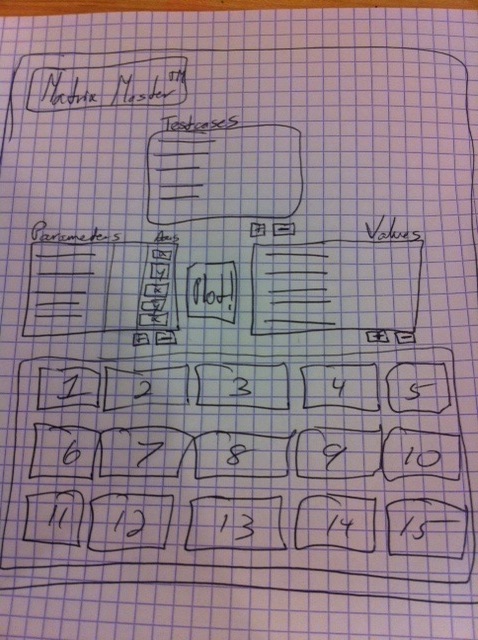 Matrix Master™
Testcases
+ -
Parameters Axis Values
Plot!
+ - + -
1 2 3 4 5
6 7 8 9 10
11 12 13 14 15